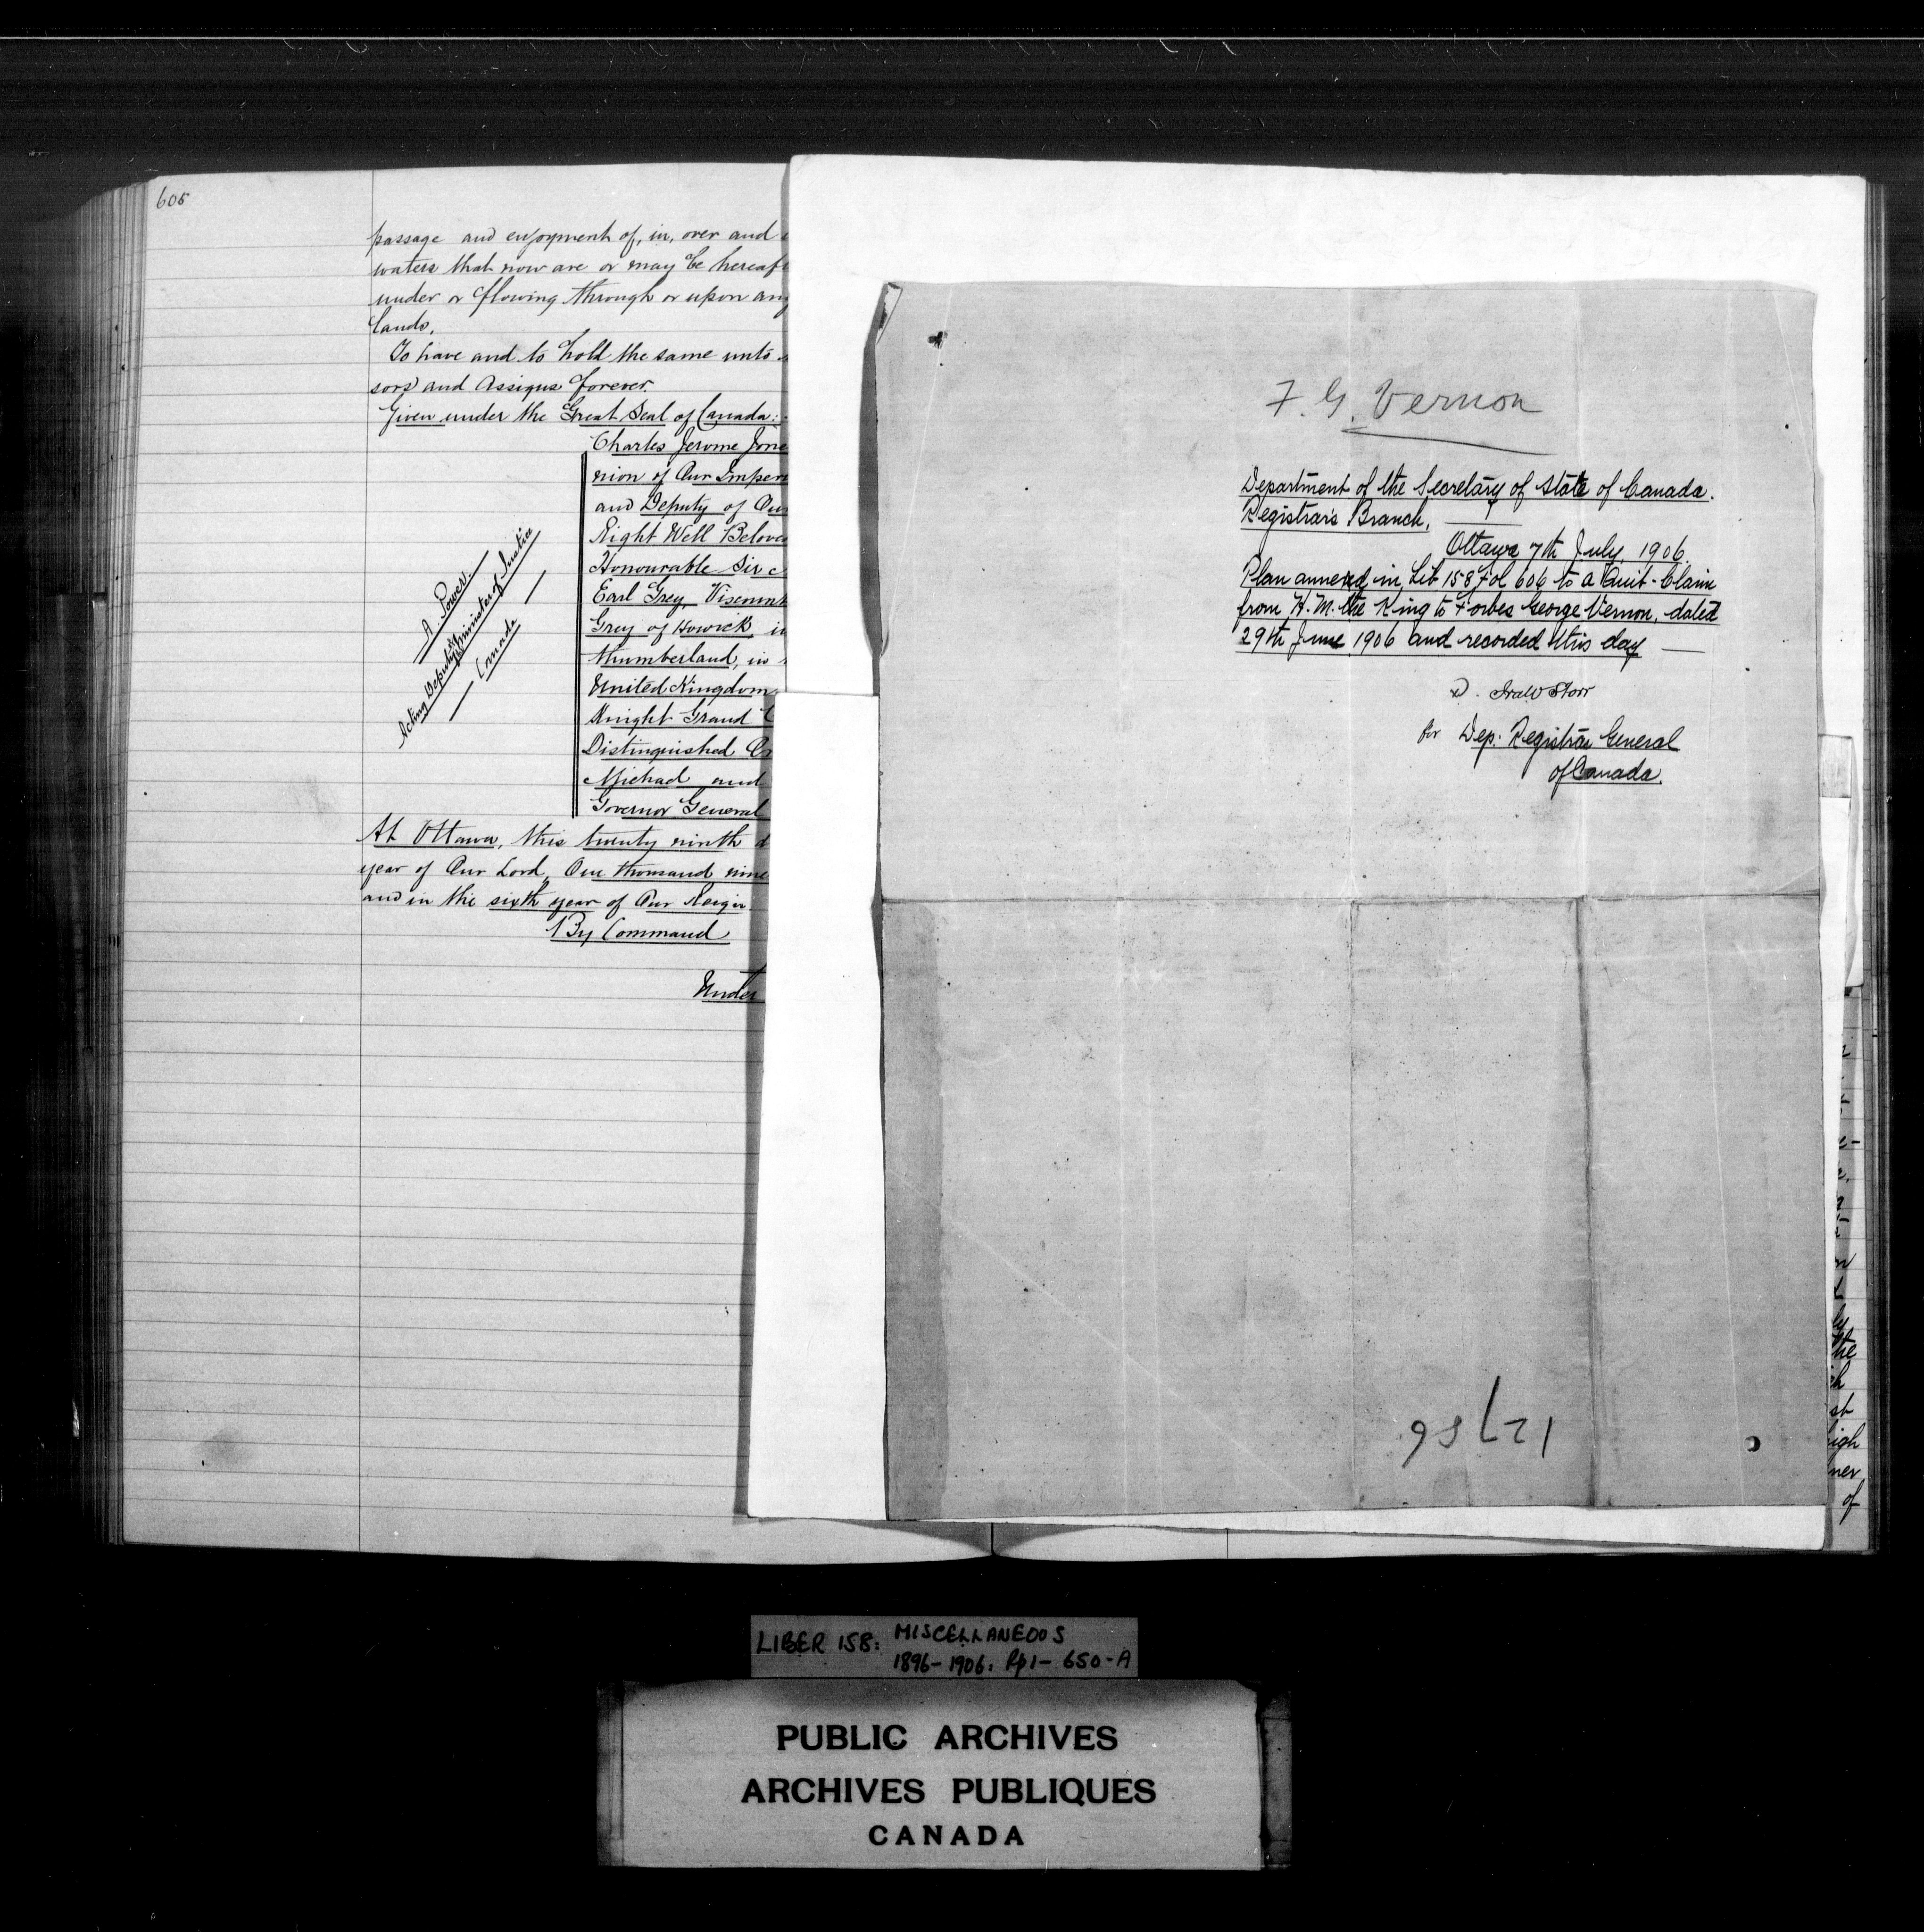 605
passage and enjoyment of, in, over and
waters that now are or may be hereaf
under or flowing through or upon any
lands.
To have and to hold the same unto
sors and Assigns forever.
Given under the Great Seal of Canada:
Charles Jerome Jone
nion of Our Imperi
and Deputy of Our
Right Well Belove
Honourable Sir
Earl Grey, Viscount
Grey of Howick, in
thumberland, in
United Kingdom
Knight Grand C
Distinguished Or
Michael and
Governor General
A Power
Acting Deputy Minister of Justice
Canada
At Ottawa, this twenty ninth d
year of Our Lord, One thousand nine
and in the sixth year of Our Reign
By Command
Under
F. G. Vernon
Department of the Secretary of State of Canada.
Registrar's Branch,
Ottawa 7th July, 1906.
Plan annexed in Lib 158 Fol 606 to a Quit-Claim
from H.M. the King to Forbes George Vernon, dated
29th June 1906 and recorded this day
for Dep. Registrar General
of Canada.
12786
the
h
st
igh
ner
of
LIBER 158: MISCELLANEOUS
1896-1906: Pp 1-650-A
PUBLIC ARCHIVES
ARCHIVES PUBLIQUES
CANADA